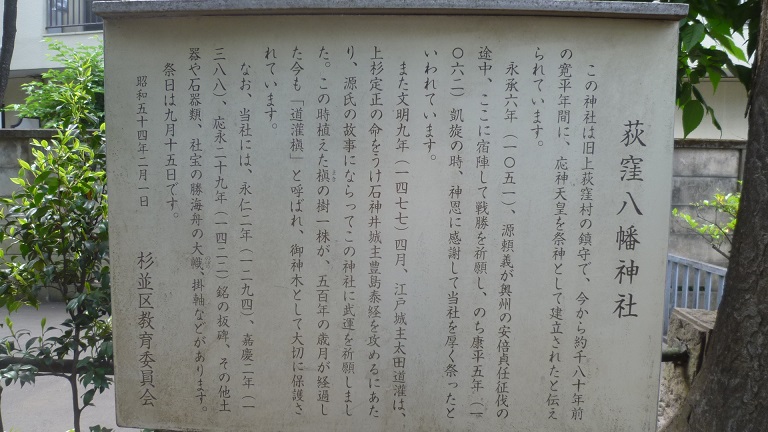 荻窪八幡神社
この神社は旧上荻窪村の鎮守で、今から約千八十年前
の寛平年間に、応神天皇を祭神として建立されたと伝え
られています。
永承六年（一〇五一）、源頼義が奥州の安倍貞任征伐の
途中、ここに宿陣して戦勝を祈願し、のち康平五年（一
〇六二）凱旋の時、神恩に感謝して当社を厚く祭ったと
いわれています。
また文明九年（一四七七）四月、江戸城主太田道灌は、
上杉定正の命をうけ石神井城主豊島泰経を攻めるにあた
り、源氏の故事にならってこの神社に武運を祈願しまし
た。この時植えた槇の樹一株が、五百年の歳月が経過し
た今も「道灌槇」と呼ばれ、御神木として大切に保護さ
れています。
なお、当社には、永仁二年（一二九四）、嘉慶二年（一
三八八）、応永二十九年（一四二二）銘の板碑、その他土
器や石器類、社宝の勝海舟の大幟、掛軸などがあります。
祭日は九月十五日です。
昭和五十四年二月一日
杉並区教育委員会